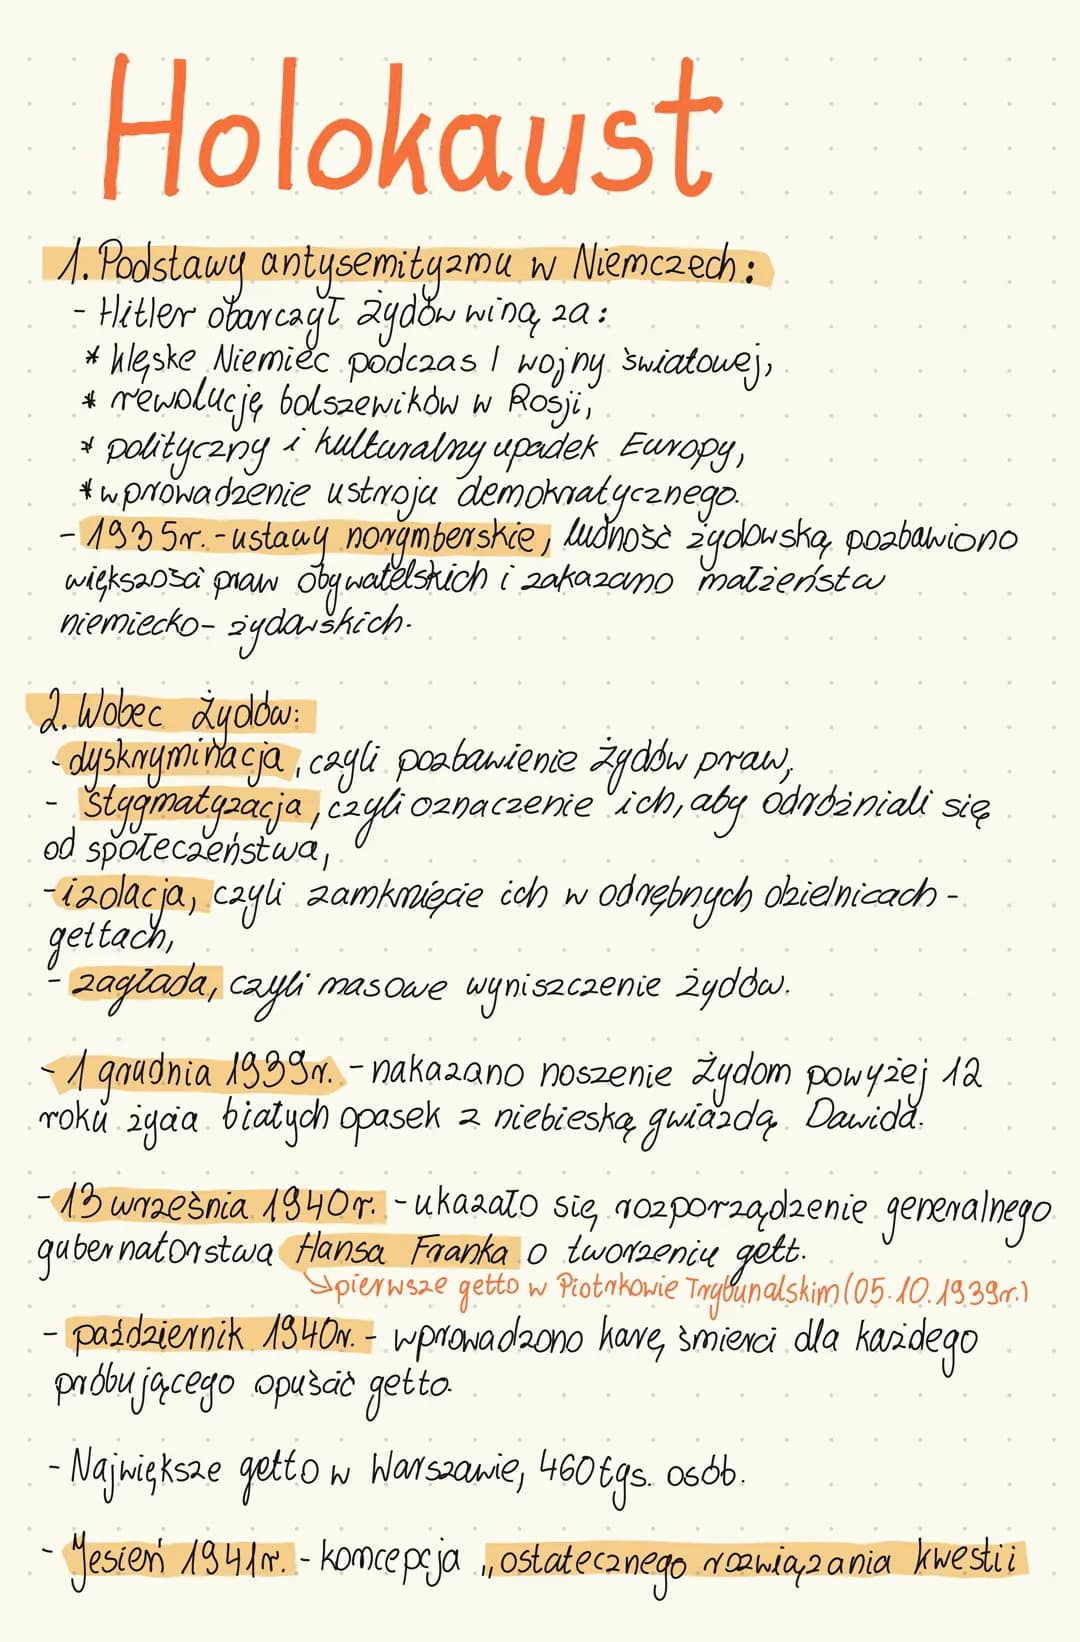 Holokaust
1. Podstawy antysemityzmu w Niemczech:
- Hitler obarczył żydów winą za:
* klęske Niemiec podczas I wojny światowej,
* rewolucję bolszewików w Rosji,
* polityczny i kulturalny upadek Europy,
* wprowadzenie ustroju demokratycznego.
- 1935r. - ustawy norymberskie, ludność żydowską pozbawiono
większości praw obywatelskich i zakazano małżeństw
niemiecko - żydowskich.
2. Wobec żydów:
- dyskryminacja, czyli pozbawienie żydów praw,
- stygmatyzacja, czyli oznaczenie ich, aby odróżniali się
od społeczeństwa,
- izolacja, czyli zamknięcie ich w odrębnych dzielnicach -
gettach,
- zagłada, czyli masowe wyniszczenie żydów.
- 1 grudnia 1939r. - nakazano noszenie żydom powyżej 12
roku życia białych opasek z niebieską gwiazdą Dawida.
- 13 września 1940r. - ukazało się rozporządzenie generalnego
gubernatorstwa Hansa Franka o tworzeniu gett.
↳ pierwsze getto w Piotrkowie Trybunalskim (05.10.1939r.)
- październik 1940r. - wprowadzono karę śmierci dla każdego
próbującego opuścić getto.
- Największe getto w Warszawie, 460 tys. osób.
- Jesień 1941r. - koncepcja „ostatecznego rozwiązania kwestii